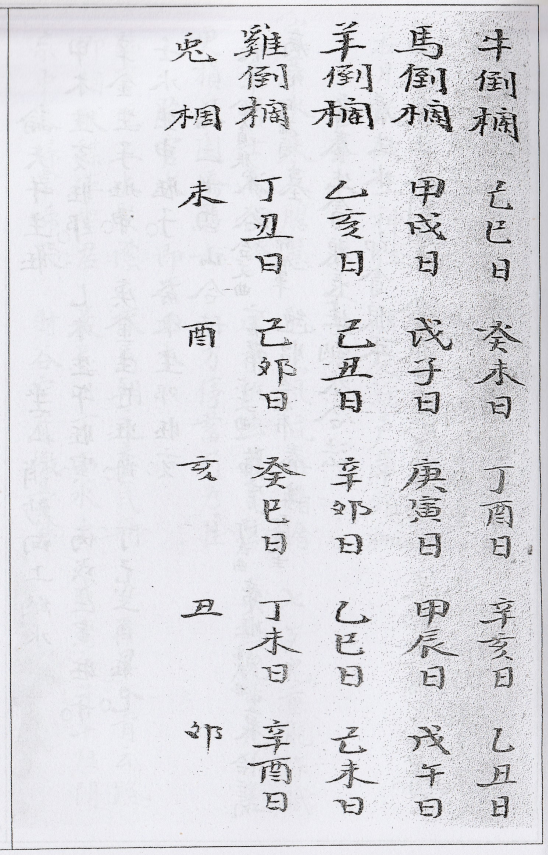 牛倒欄 己巳日 癸未日 丁酉日 辛亥日 乙丑日
馬倒欄 甲戌日 戊子日 庚寅日 甲辰日 戊午日
羊倒欄 乙亥日 己丑日 辛卯日 乙巳日 己未日
雞倒欄 丁丑日 己卯日 癸巳日 丁未日 辛酉日
兎 未 酉 亥 丑 卯